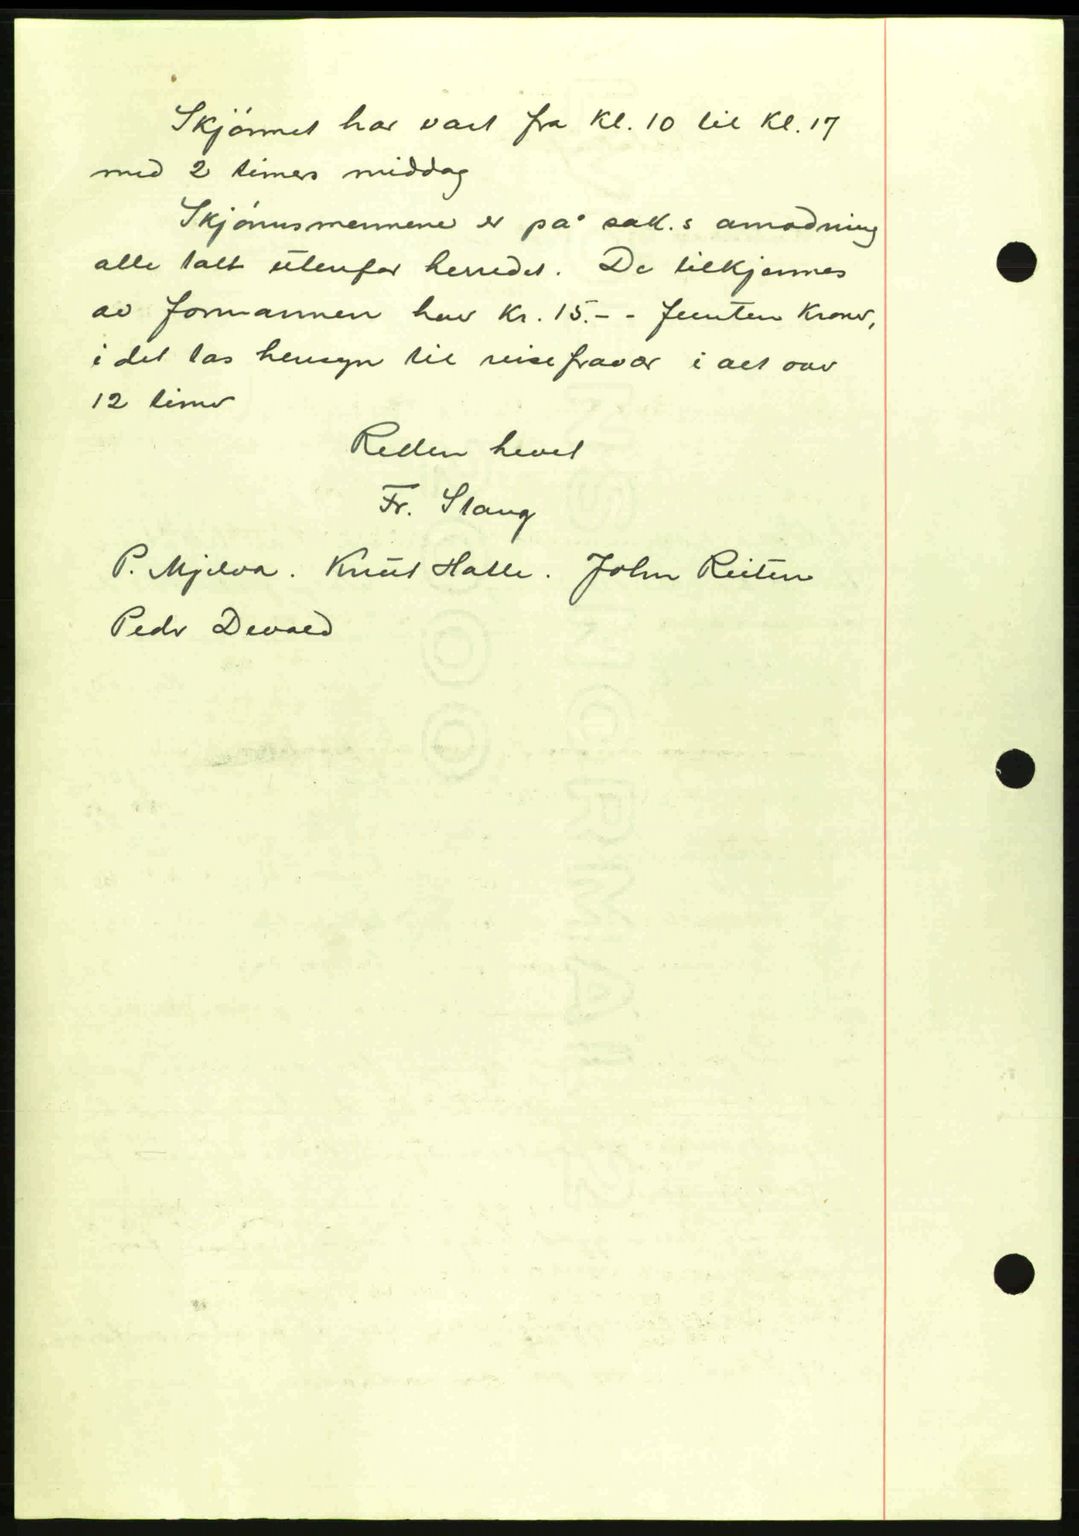 Skjönnet har vart fra Kl. 10 til Kl. 17
med 2 timers middag
Skjönnsmennene er på sak.s anmodning
alle tatt utenfor herredet. De tilkjennes
av formannen hver Kr. 15.- - femten Kroner,
i det tas hensyn til reisefravær i alt over
12 timer
Retten hevet
Fr. Stang
P. Mjelva. Knut Halle. John Reiten
Peder Devold